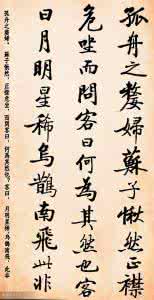 孤舟之嫠婦蘇子愀然正襟
危坐而問客曰何為其然也客
曰月明星稀烏鵲南飛此非
孤舟之嫠婦。蘇子愀然，正襟危坐，而問客曰：何為其然也？客曰：月明星稀，烏鵲南飛，此非